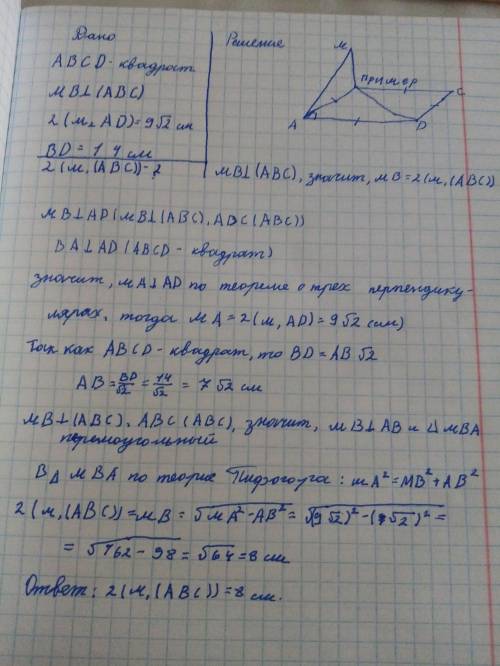 Дано
Решение
ABCD - квадрат
MB⊥(ABC)
2(M, AD)=9√2 см
BD = 14 см
2(M, (ABC))-?
M
пример
C
A
D
MB⊥(ABC), значит, MB=2(M, (ABC))
MB⊥AD (MB⊥(ABC), ADC(ABC))
BA⊥AD (ABCD - квадрат)
значит, MA⊥AD по теореме о трех перпендику-
лярах, тогда MA=2(M, AD)=9√2 (см)
Так как ABCD - квадрат, то BD=AB√2
AB=BD/√2=14/√2=7√2 см
MB⊥(ABC), ABC(ABC), значит, MB⊥AB и ΔMBA
прямоугольный
BΔ MBA по теореме Пифагора: MA²=MB²+AB²
2(M, (ABC))=MB=√MA²-AB²=√(9√2)²-(7√2)²=
=√162-98=√64=8 см
Ответ: 2(M, (ABC))=8 см.